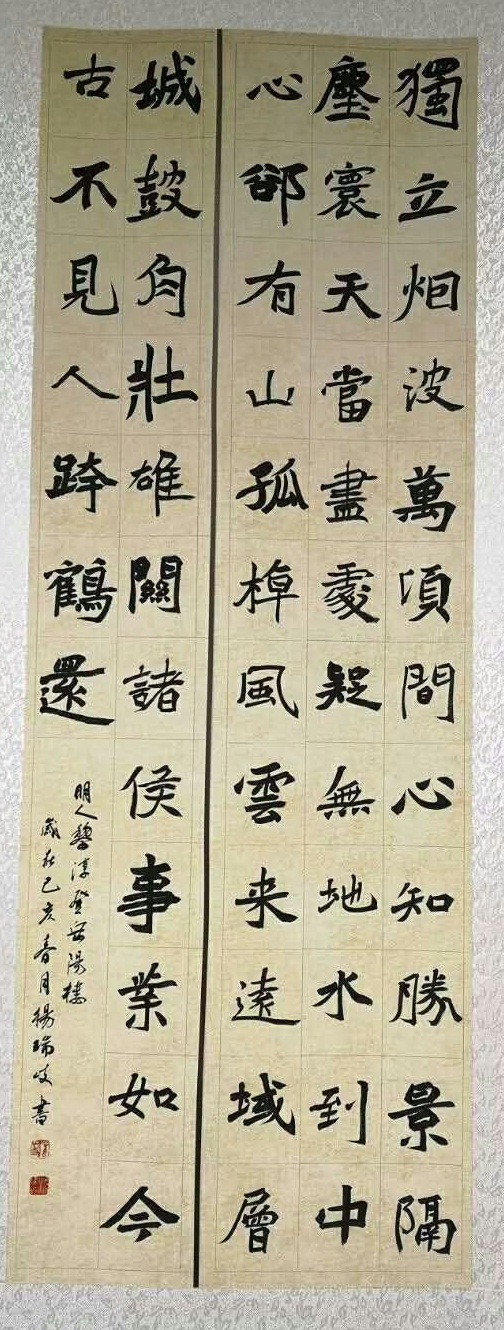 獨立烟波萬頃間心知勝景隔
塵寰天當盡處疑無地水到中
心郤有山孤棹風雲来遠域層
城鼓角壯雄關諸侯事業如今
古不見人跨鶴還
明人黎淳登岳陽樓
歲在己亥春月楊瑞岐書